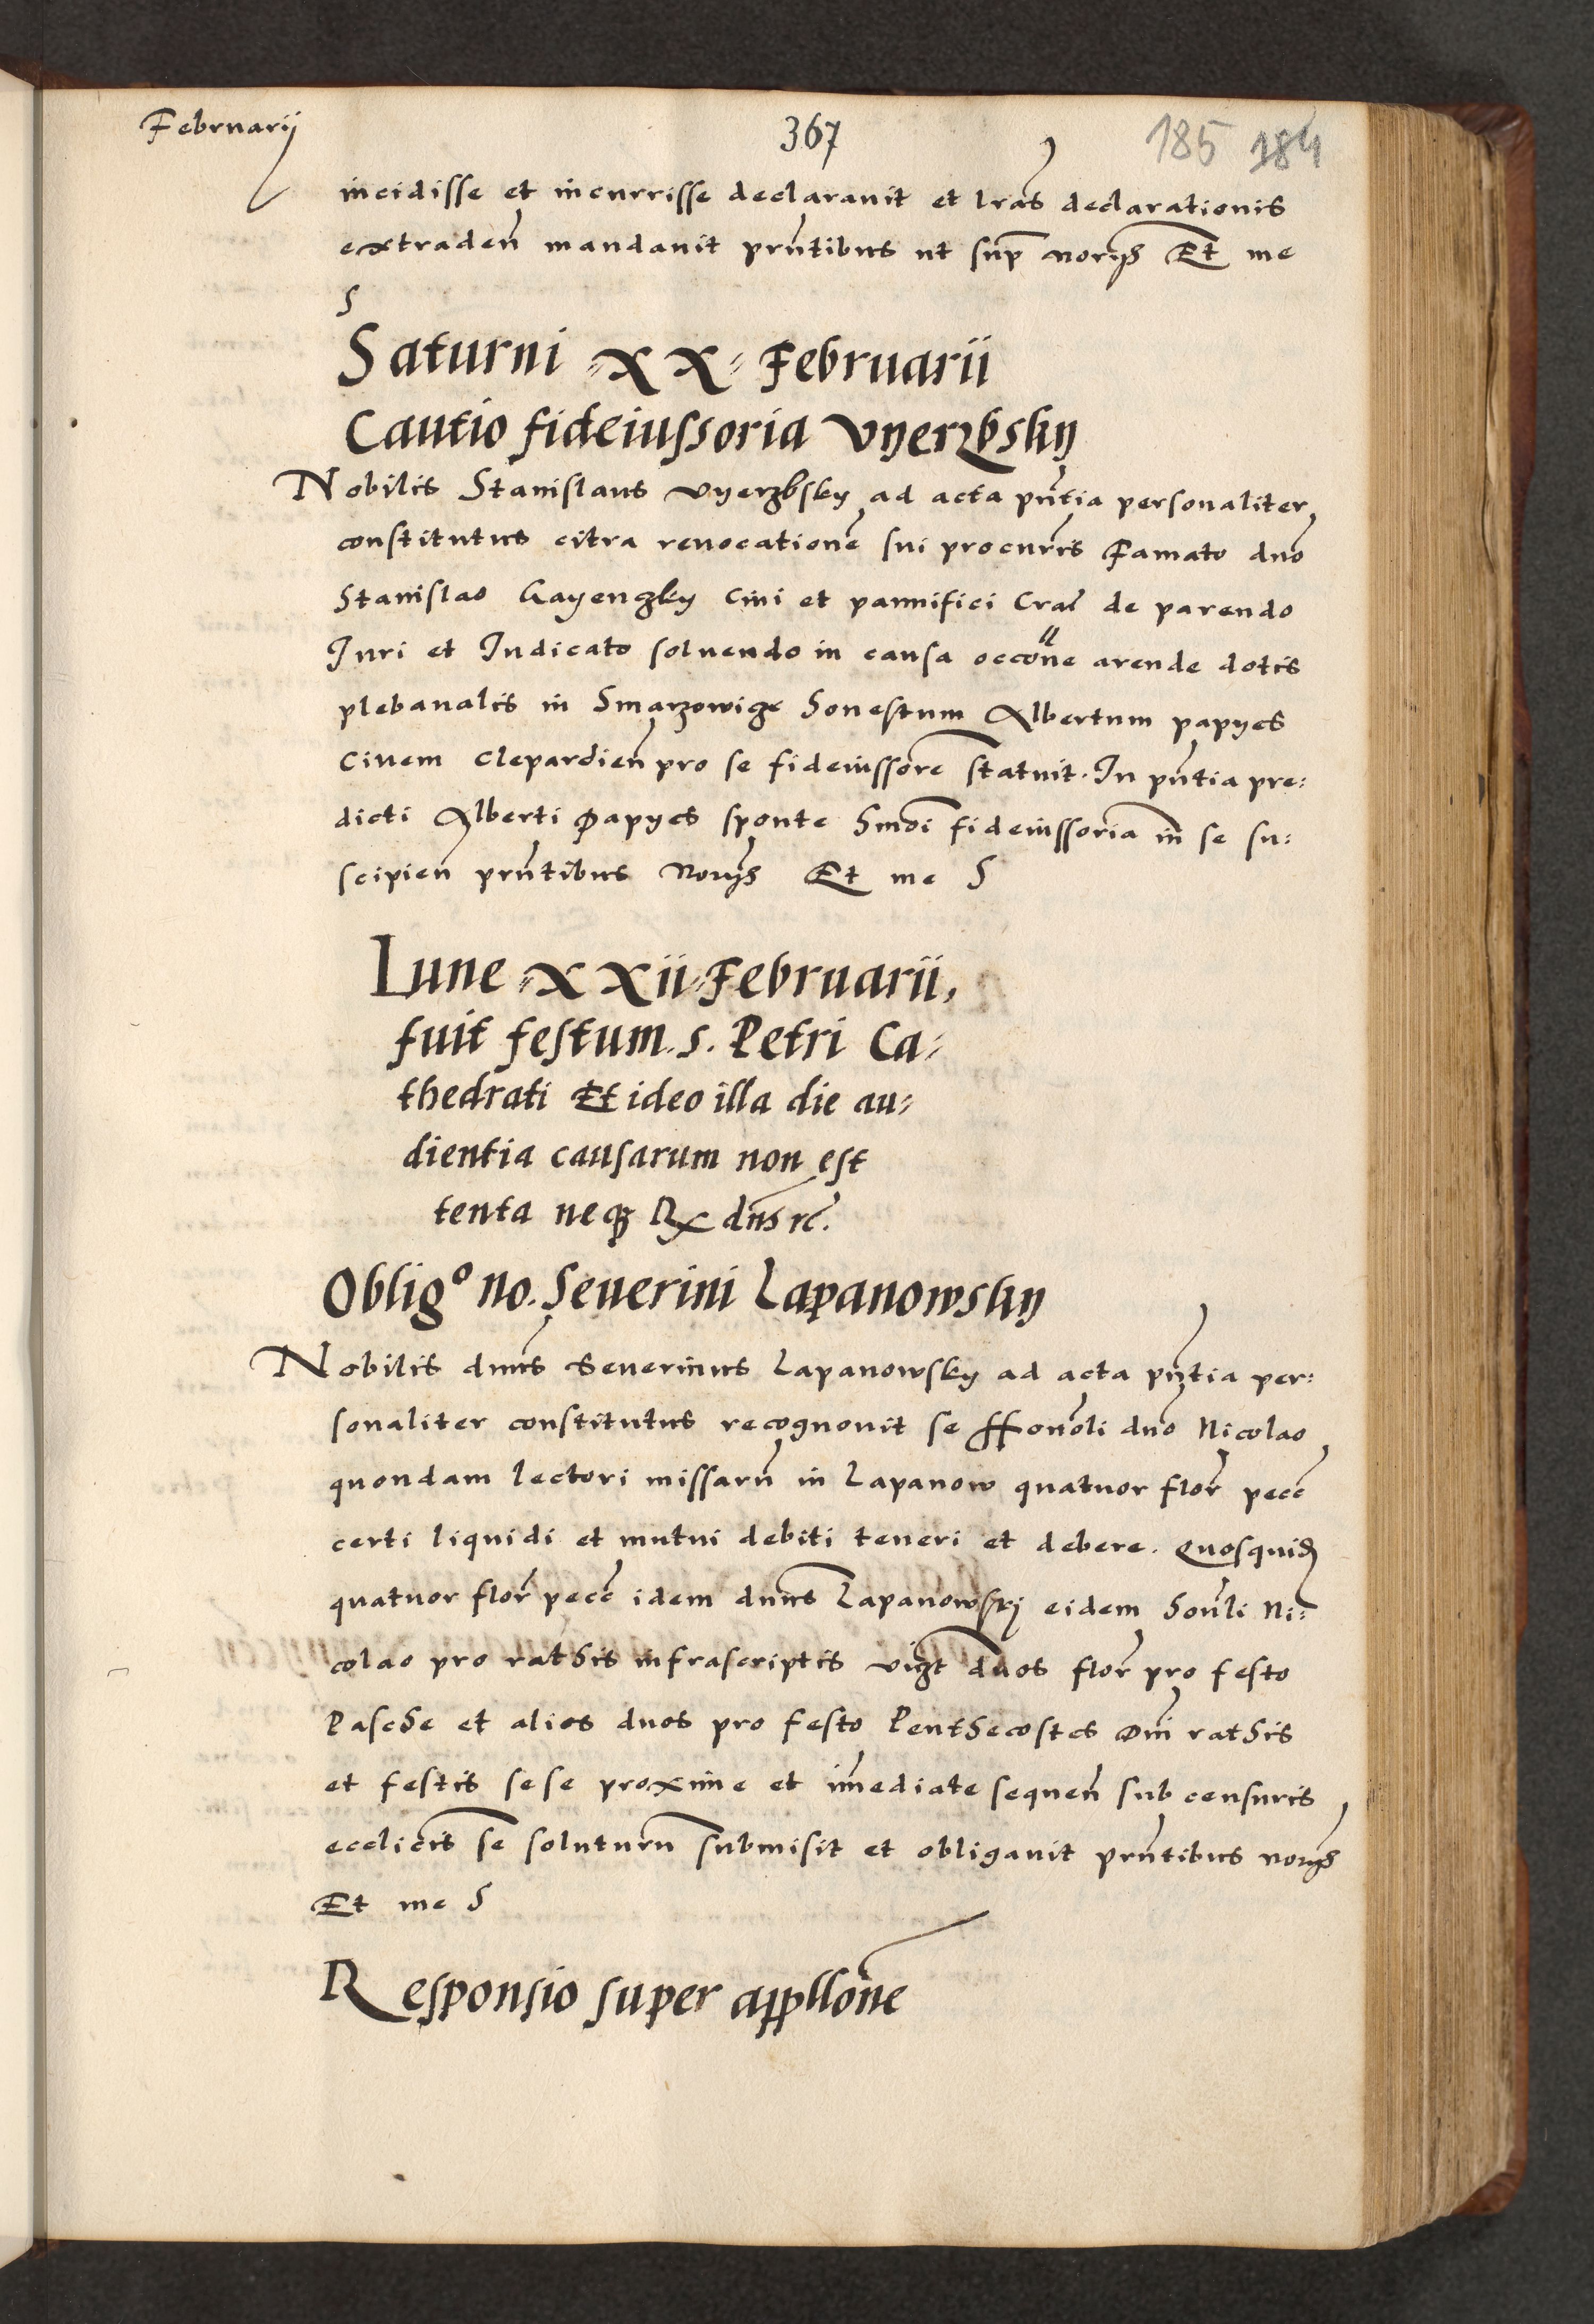 Februarij
367
185 184
incidisse et incurrisse declaravit et lras declarationis
extraden mandavit prntibus ut sup norijs Et me
S
Saturni XX Februarii
Cautio fideiussoria Vyerzbsky
Nobilis Stanislaus Vyerzbsky ad acta pntia personaliter
constitutus citra revocatione sui procuris Famato dno
Stanislao Gayenczky Civi et pannifici Cral de parendo
Iuri et Iudicato solvendo in causa occone arende dotis
plebanalis in Smarzowicze Honestum Albertum papyes
Civem Clepardien pro se fideiussore statuit. In pntia pre:
dicti Alberti Papyes sponte hmoi fideiussoria in se su:
scipien prntibus Norijs Et me S
Lune XXii Februarii,
fuit festum .s. Petri Ca:
thedrati Et ideo illa die au:
dientia causarum non est
tenta neq Rx dns rc.
Obligo no. Severini Lapanowsky
Nobilis dnus Severinus Lapanowsky ad acta pntia per:
sonaliter constitutus recognovit se Honoli dno Nicolao
quondam lectori missaru in Lapanow quatuor flor pecc
certi liquidi et mutui debiti teneri et debere. Quosquid
quatuor flor pecc idem dnus Lapanowski eidem honli Ni:
colao pro rathis infrascriptis vigt duos flor pro festo
Pasche et alios duos pro festo Penthecostes Om rathis
et festis sese proxime et imediate sequen sub censuris
ecclicis se soluturu submisit et obligavit prntibus norijs
Et me S
Responsio super appllone